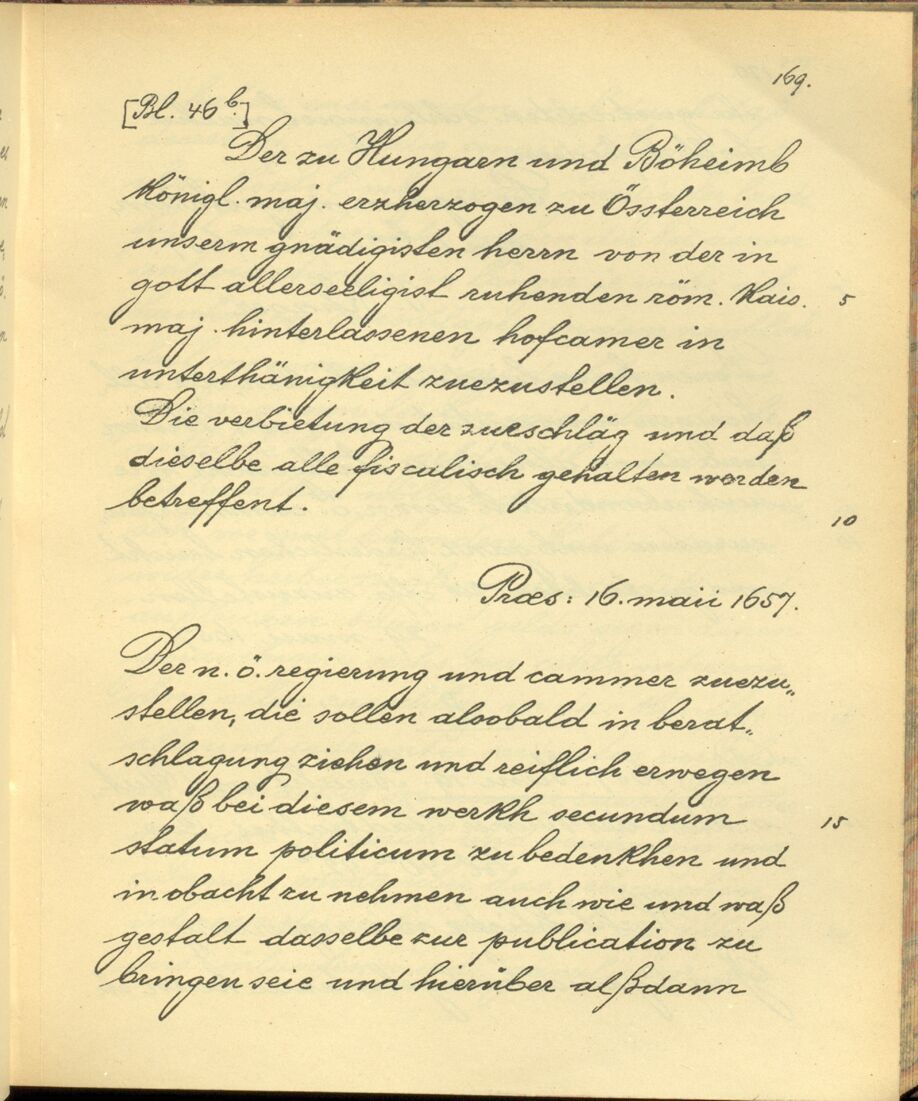 169.
[Bl. 46 b.]
Der zu Hungarn und Böheimb
königl. maj. erzherzogen zu Össterreich
unserm gnädigisten herrn von der in
gott allerseeligist ruhenden röm. kais. 5
maj. hinterlassenen hofcamer in
unterthänigkeit zuezustellen.
Die verbietung der zueschläg und daß
dieselbe alle fiscalisch gehalten werden
betreffent.
10
Præs: 16. maii 1657.
Der n. ö. regierung und cammer zuezu„
stellen, die sollen alsobald in berat„
schlagung ziehen und reiflich erwegen
waß bei diesem werkh secundum 15
statum politicum zu bedenkhen und
in obacht zu nehmen auch wie und waß
gestalt dasselbe zur publication zu
bringen seie und hierüber alßdann